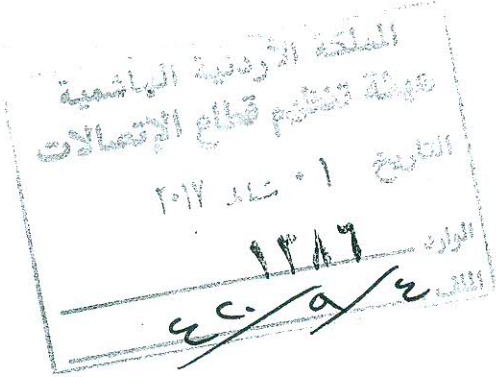 المملكة الأردنية الهاشمية
هيئة تنظيم قطاع الإتصالات
التاريخ ٠١ شباط ٢٠١٧
الوارد ١٣٨٦
الملف ٤/٩/